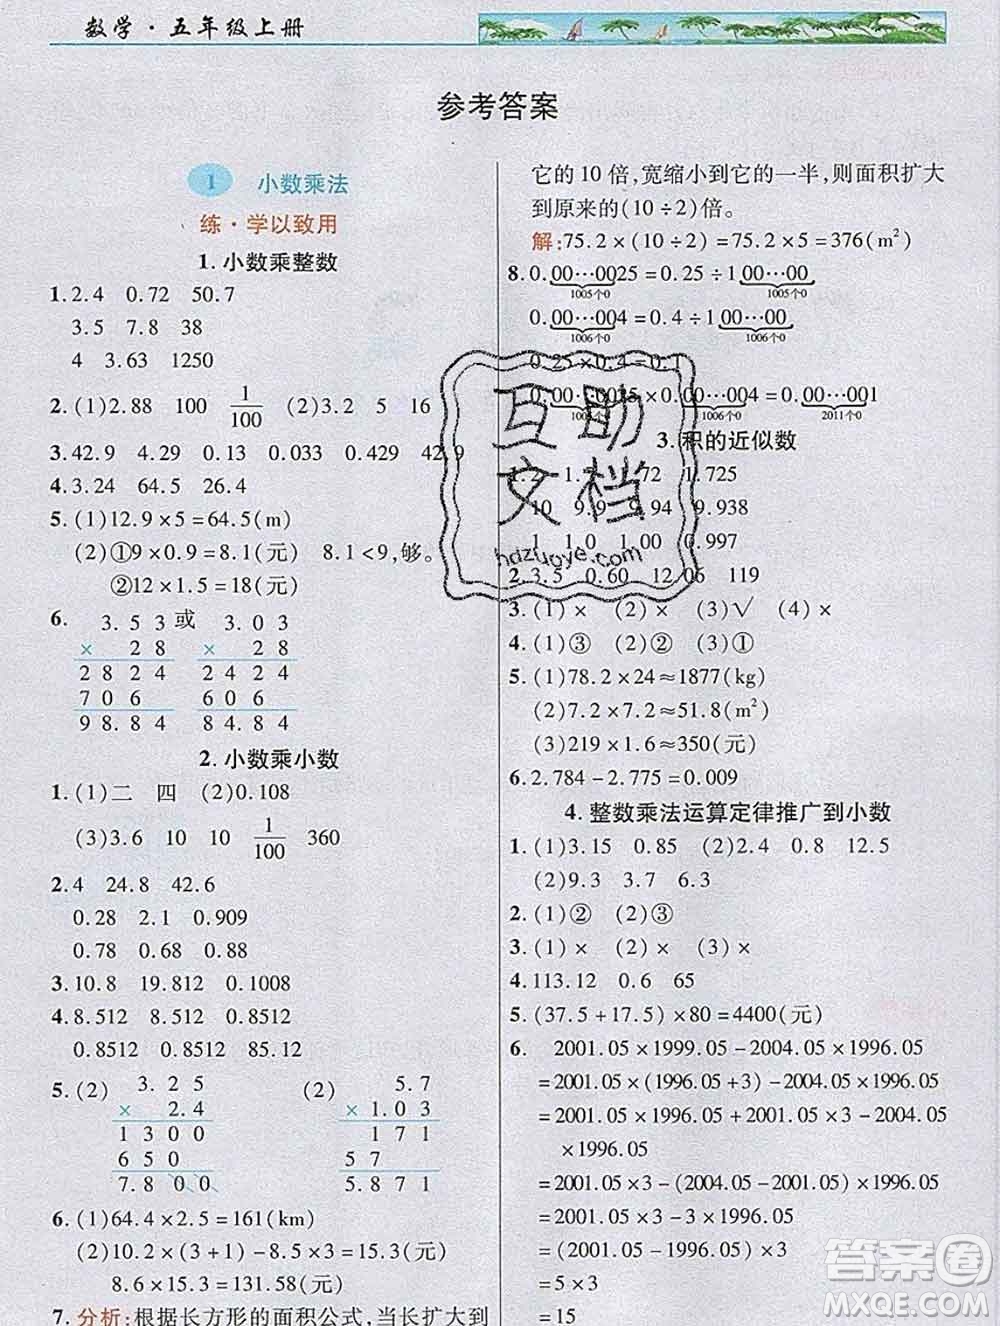 数学·五年级上册
参考答案
1 小数乘法
练·学以致用
1.小数乘整数
1.2.4 0.72 50.7
3.5 7.8 38
4 3.63 1250
2.(1)2.88 100 1/100 (2)3.2 5 16
3.42.9 4.29 0.13 0.033 0.429 42.9
4.3.24 64.5 26.4
5.(1)12.9×5=64.5(m)
(2)①9×0.9=8.1(元) 8.1<9,够。
②12×1.5=18(元)
6. 3.53 或 3.03
× 28 × 28
2824 2424
706 606
98.84 84.84
2.小数乘小数
1.(1)二 四 (2)0.108
(3)3.6 10 10 1/100 360
2.4 24.8 42.6
0.28 2.1 0.909
0.78 0.68 0.88
3.10.8 19.812 0.1008
4.8.512 8.512 0.8512
0.8512 0.8512 0.08512
5.(2) 3.25 (2) 5.7
× 2.4 ×1.03
1300 171
650 57
7.800 5.871
6.(1)64.4×2.5=161(km)
(2)10.2×(3+1)-8.5×3=15.3(元)
8.6×15.3=131.58(元)
7.分析:根据长方形的面积公式,当长扩大到
它的10倍,宽缩小到它的一半,则面积扩大
到原来的(10÷2)倍。
解:75.2×(10÷2)=75.2×5=376(m²)
8.0.00…0025=0.25÷100…00
1005个0 1005个0
0.00…004=0.4÷100…00
1006个0 1006个0
0.25×0.4=0.1
0.00…0025×0.00…004=0.00…001
1005个0 1006个0 2011个0
3.积的近似数
1.2 1.7 1.72 1.725
10 9.9 9.94 9.938
1 1.0 1.00 0.997
2.3.5 0.60 12.06 119
3.(1)× (2)× (3)√ (4)×
4.(1)③ (2)② (3)①
5.(1)78.2×24≈1877(kg)
(2)7.2×7.2≈51.8(m²)
(3)219×1.6≈350(元)
6.2.784-2.775=0.009
4.整数乘法运算定律推广到小数
1.(1)3.15 0.85 (2)2.4 0.8 12.5
(2)9.3 3.7 6.3
2.(1)② (2)③
3.(1)× (2)× (3)×
4.113.12 0.6 65
5.(37.5+17.5)×80=4400(元)
6. 2001.05×1999.05-2004.05×1996.05
=2001.05×(1996.05+3)-2004.05×1996.05
=2001.05×1996.05+2001.05×3-2004.05
×1996.05
=2001.05×3-(2004.05-2001.05)×1996.05
=2001.05×3-3×1996.05
=(2001.05-1996.05)×3
=5×3
=15
互助
文档
hdzuoye.com
答案圈
MXQE.COM